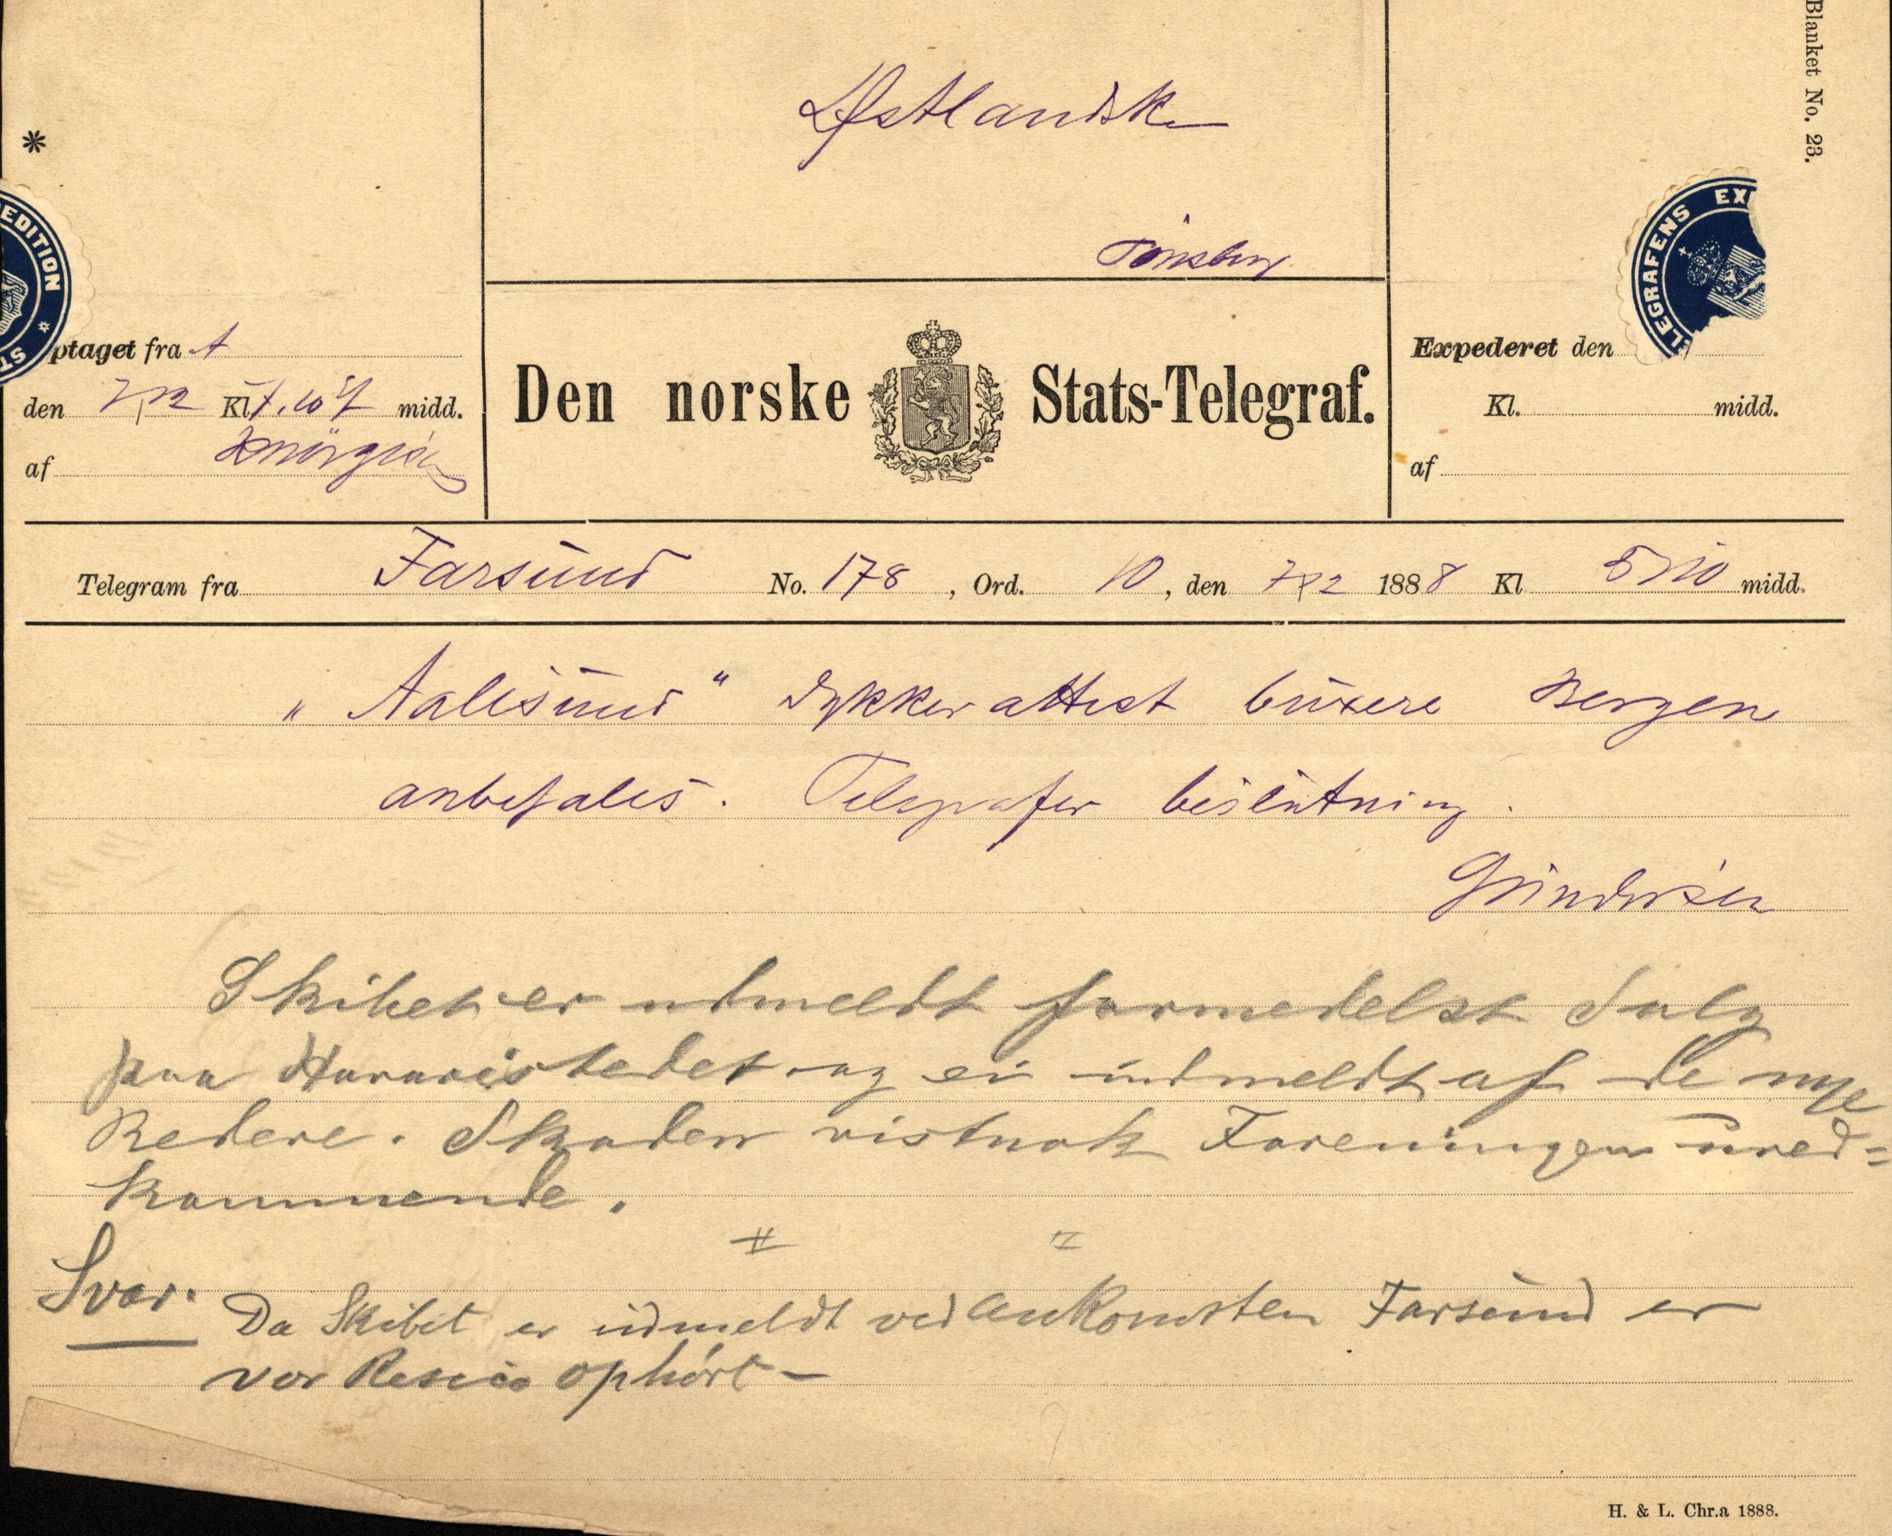 Blanket No. 23.
Østlandske
Tönsberg
*
EDITION
ST
TELEGRAFENS EX
ptaget fra A
den 7/12 Kl. 7.10 midd.
af
Den norske Stats-Telegraf.
Expederet den
Kl. midd.
af
Telegram fra Farsund No. 178, Ord. 10, den 7/12 1888 Kl 5 10 midd.
"Aalesund" dykkerattest buxere Bergen
anbefales. Telegrafer beslutning.
Gundersen
Skibet er udmeldt formedelst Salg
paa Havaristedet og ei indmeldt af de nye
Redere. Skaden vistnok Foreningen uved=
kommende.
Svar.
Da Skibet er udmeldt ved Ankomsten Farsund er
vor Resico ophørt —
H. & L. Chr.a 1888.